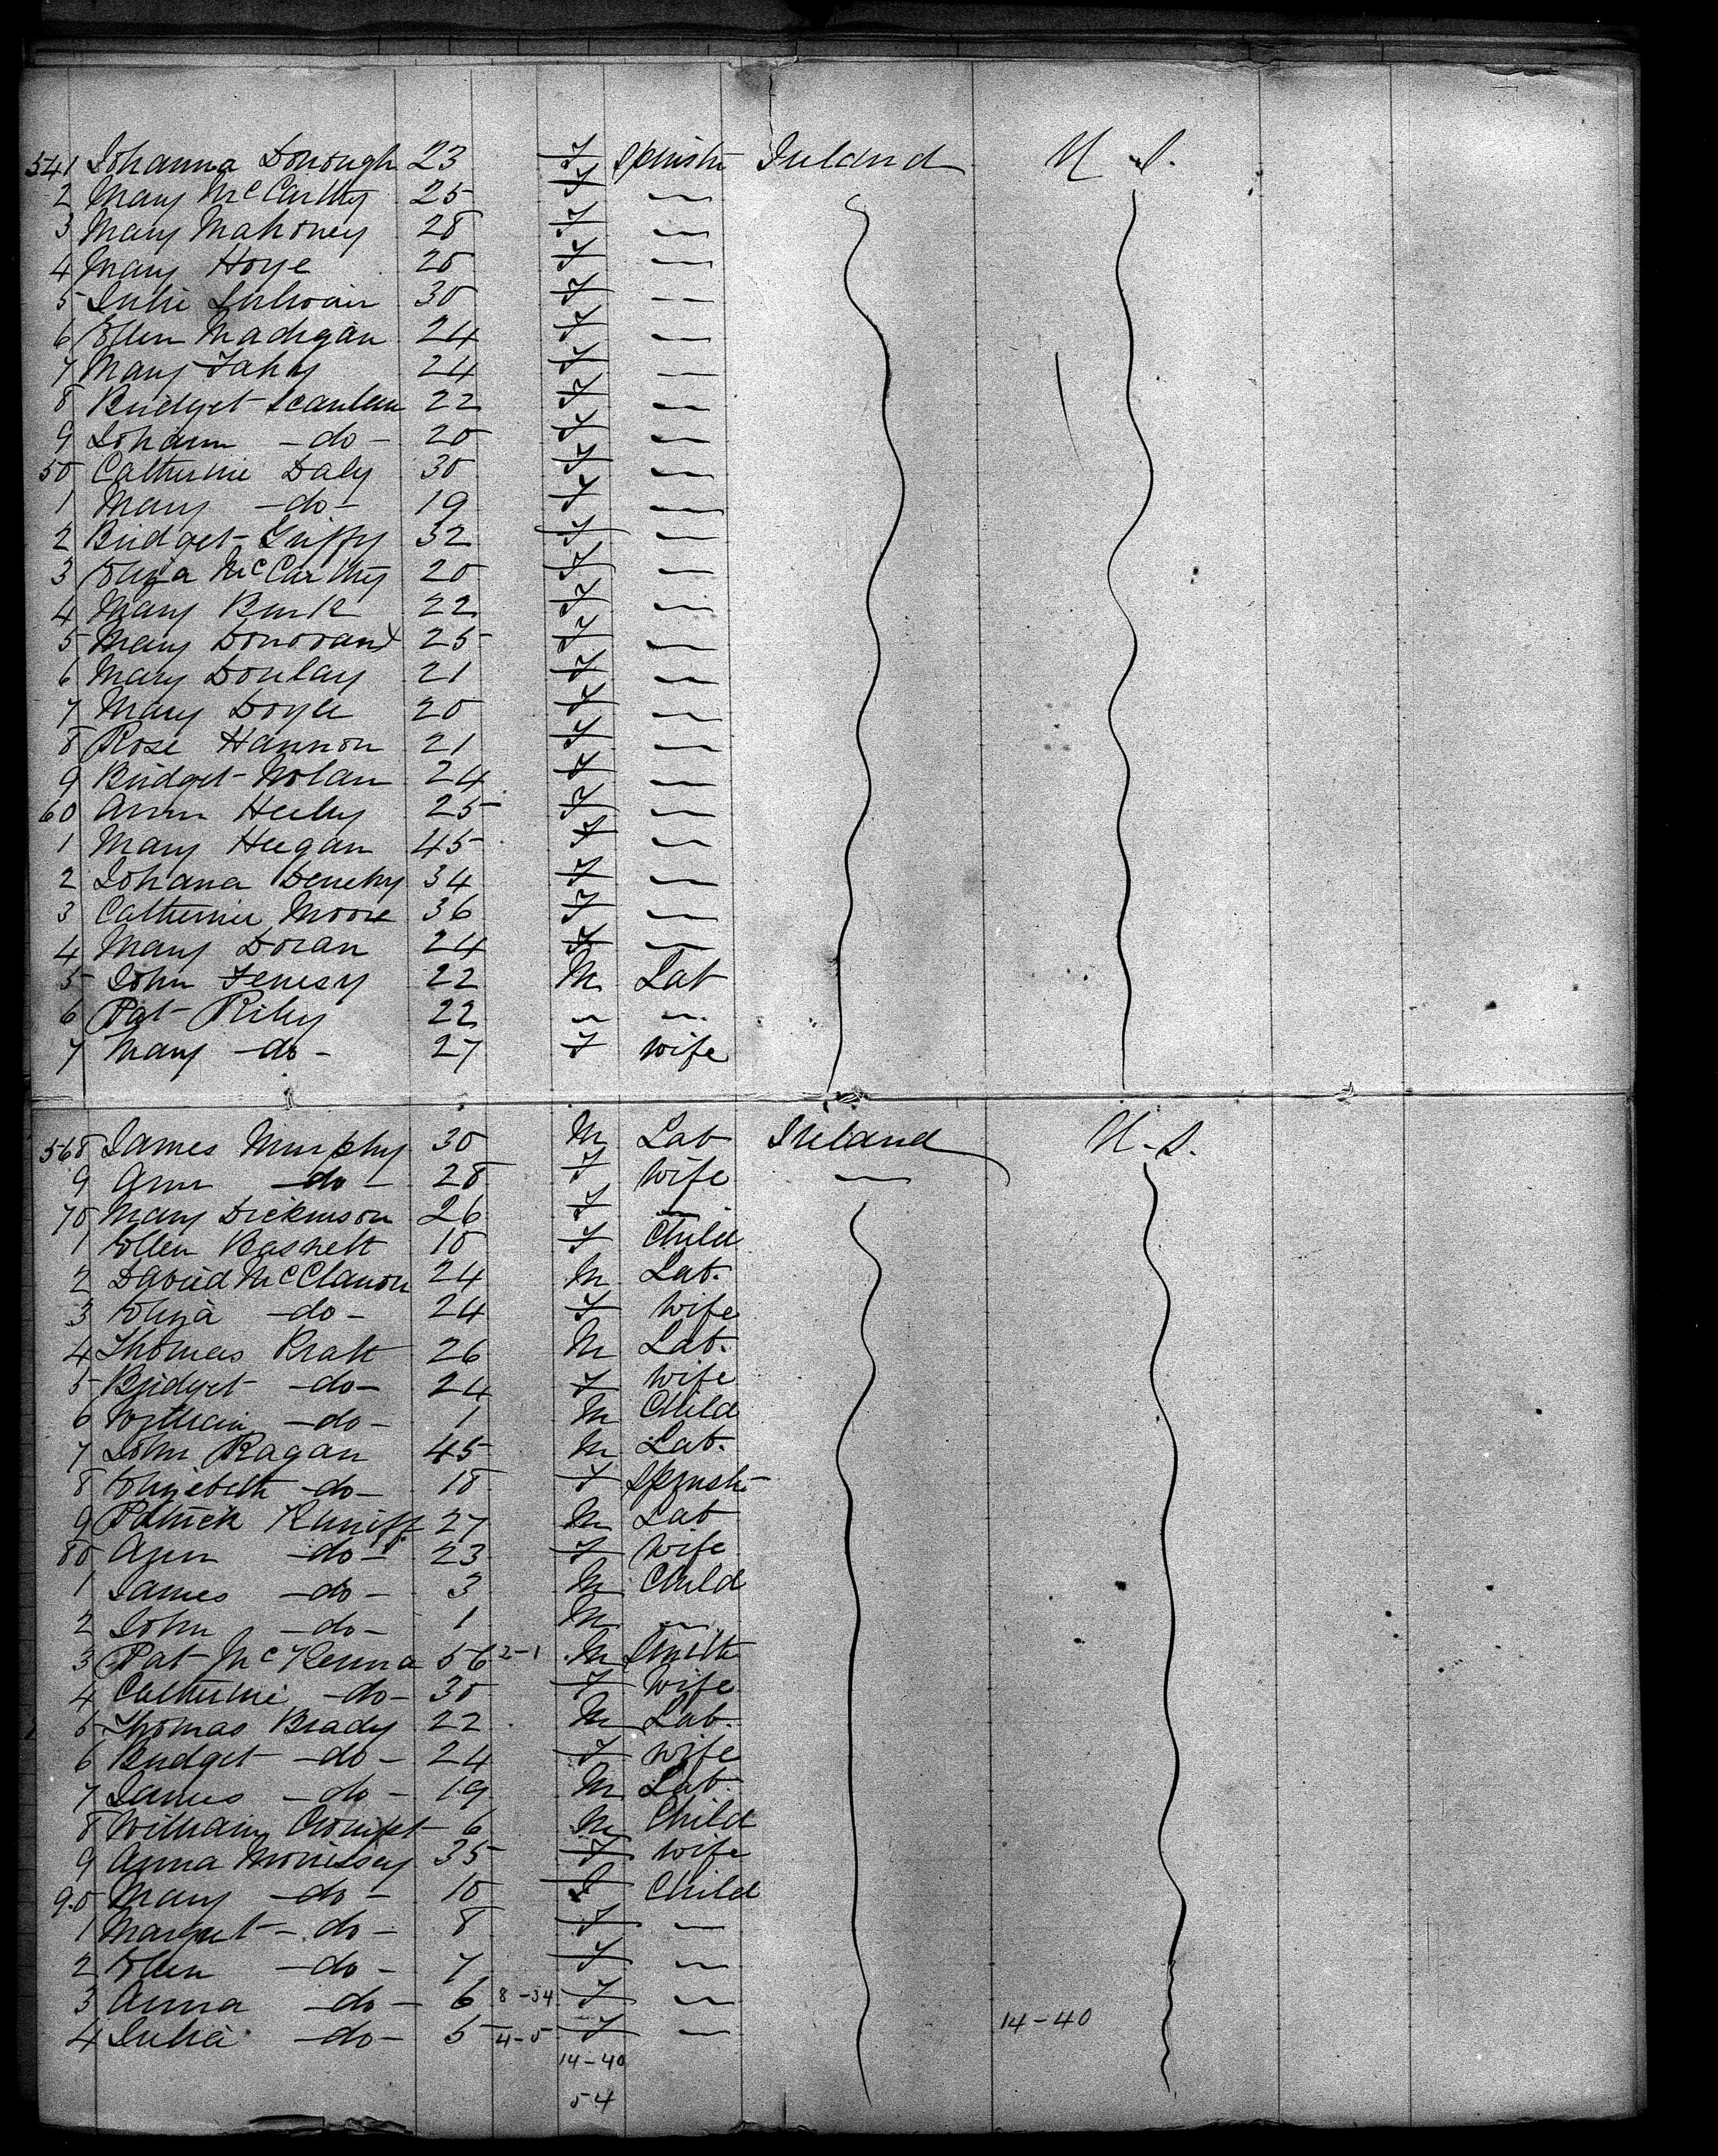 541 Johanna Donough 23 F Spinster Ireland U-S.
2 Mary McCarthy 25 F —
3 Mary Mahoney 28 F —
4 Mary Hoye 20 F —
5 Julie Sulivain 30 F —
6 Ellen Madigan 24 F —
7 Mary Fahy 24 F —
8 Bridget Scanlan 22 F —
9 Johann -do- 20 F —
50 Catherine Daly 30 F —
1 Mary -do- 19 F —
2 Bridget Griffy 32 F —
3 Eliza McCarthy 20 F —
4 Mary Burk 22 F —
5 Mary Donovan 25 F —
6 Mary Donlay 21 F —
7 Mary Doyle 20 F —
8 Rose Hannon 21 F —
9 Bridget Nolan 24 F —
60 Ann Heeley 25 F —
1 Mary Heegan 45 F —
2 Johana Denehy 34 F —
3 Catherine Moore 36 F —
4 Mary Doran 24 F —
5 John Fenesy 22 M Lab
6 Pat Riley 22 — —
7 Mary -do- 27 F wife
568 James Murphy 30 M Lab Ireland U-S.
9 Ann -do- 28 F wife —
70 Mary Dickinson 26 F —
1 Ellen Basnett 10 F Child
2 David McClanon 24 M Lab.
3 Eliza -do- 24 F wife
4 Thomas Pratt 26 M Lab.
5 Bridget -do- 24 F wife
6 William -do- 1 M Child
7 John Ragan 45 M Lab.
8 Elizebeth -do- 18 F Spinster
9 Patrick Kuniff 27 M Lab
80 Ann -do- 23 F wife
1 James -do- 3 M Child
2 John -do- 1 M —
3 Pat McKenna 56 2-1 M Smith
4 Catherine -do- 30 F Wife
5 Thomas Brady 22 M Lab.
6 Bridget -do- 24 F wife
7 James -do- 19 M Lab.
8 William 6 M Child
9 Anna Morissey 35 F wife
90 Mary -do- 10 F Child
1 Margret -do- 8 F —
2 Ellen -do- 7 F —
3 Anna -do- 6 8-34 F —
4 Julia -do- 5 4-5 F — 14-40
14-40
54